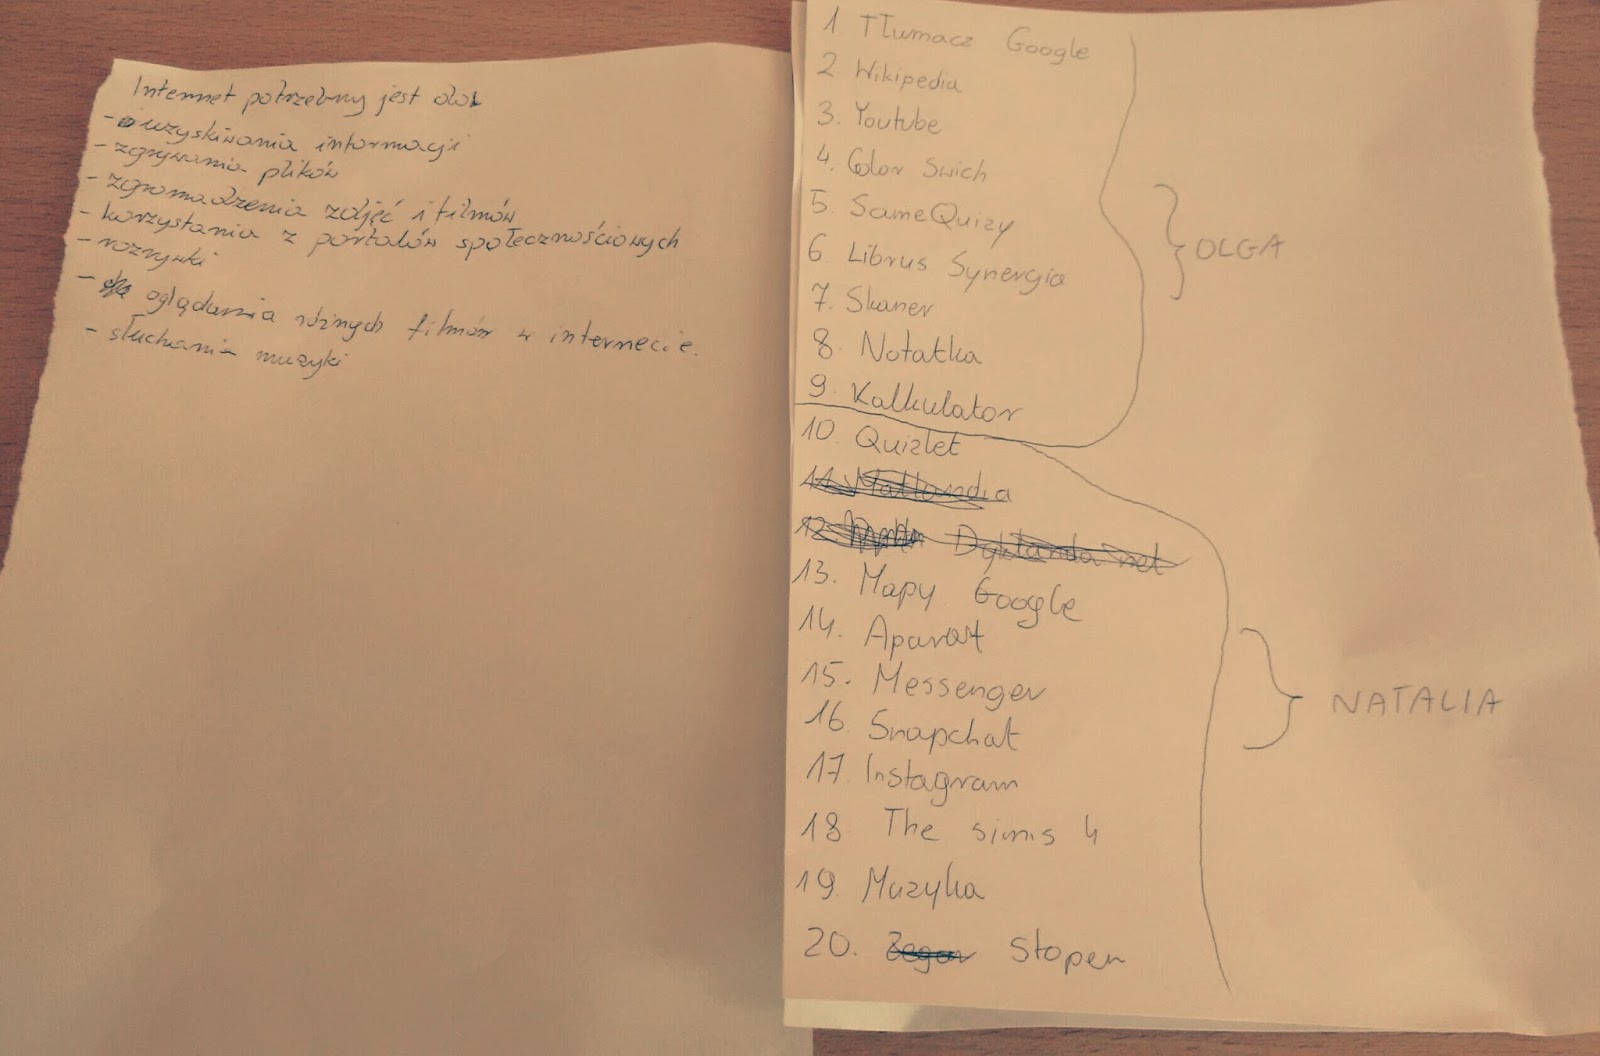 Internet potrzebny jest do:
- uzyskiwania informacji
- zgrywania plików
- zgromadzenia zdjęć i filmów
- korzystania z portalów społecznościowych
- rozrywki
- oglądania różnych filmów w internecie.
- słuchania muzyki
1 Tłumacz Google
2 Wikipedia
3. Youtube
4. Color Swich
5. SameQuizy
6 Librus Synergia
7. Skaner
8. Notatka
9. Kalkulator
OLGA
10. Quizlet
11 Matlandia
12. Dyktanda net
13. Mapy Google
14. Aparat
15. Messenger
16. Snapchat
17. Instagram
18 The sims 4
19. Muzyka
20. Zegar Stoper
NATALIA